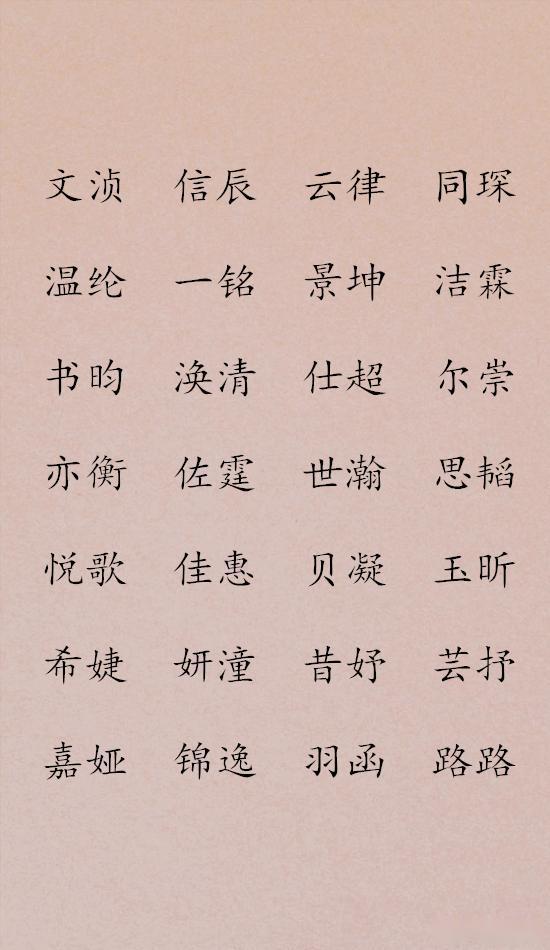 文浈 信辰 云律 同琛
温纶 一铭 景坤 洁霖
书昀 涣清 仕超 尔崇
亦衡 佐霆 世瀚 思韬
悦歌 佳惠 贝凝 玉昕
希婕 妍潼 昔妤 芸抒
嘉娅 锦逸 羽函 路路